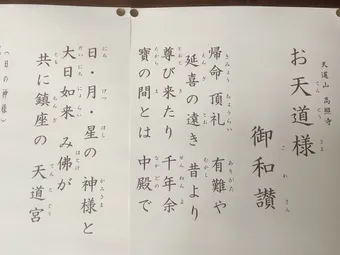 天道山 高照寺
お天道様
御和讃
帰命頂礼 有難や
延喜の遠き 昔より
尊び来たり 千年余
寳の間とは 中殿で
日・月・星の 神様と
大日如来 み佛が
共に鎮座の 天道宮
(日の神様)